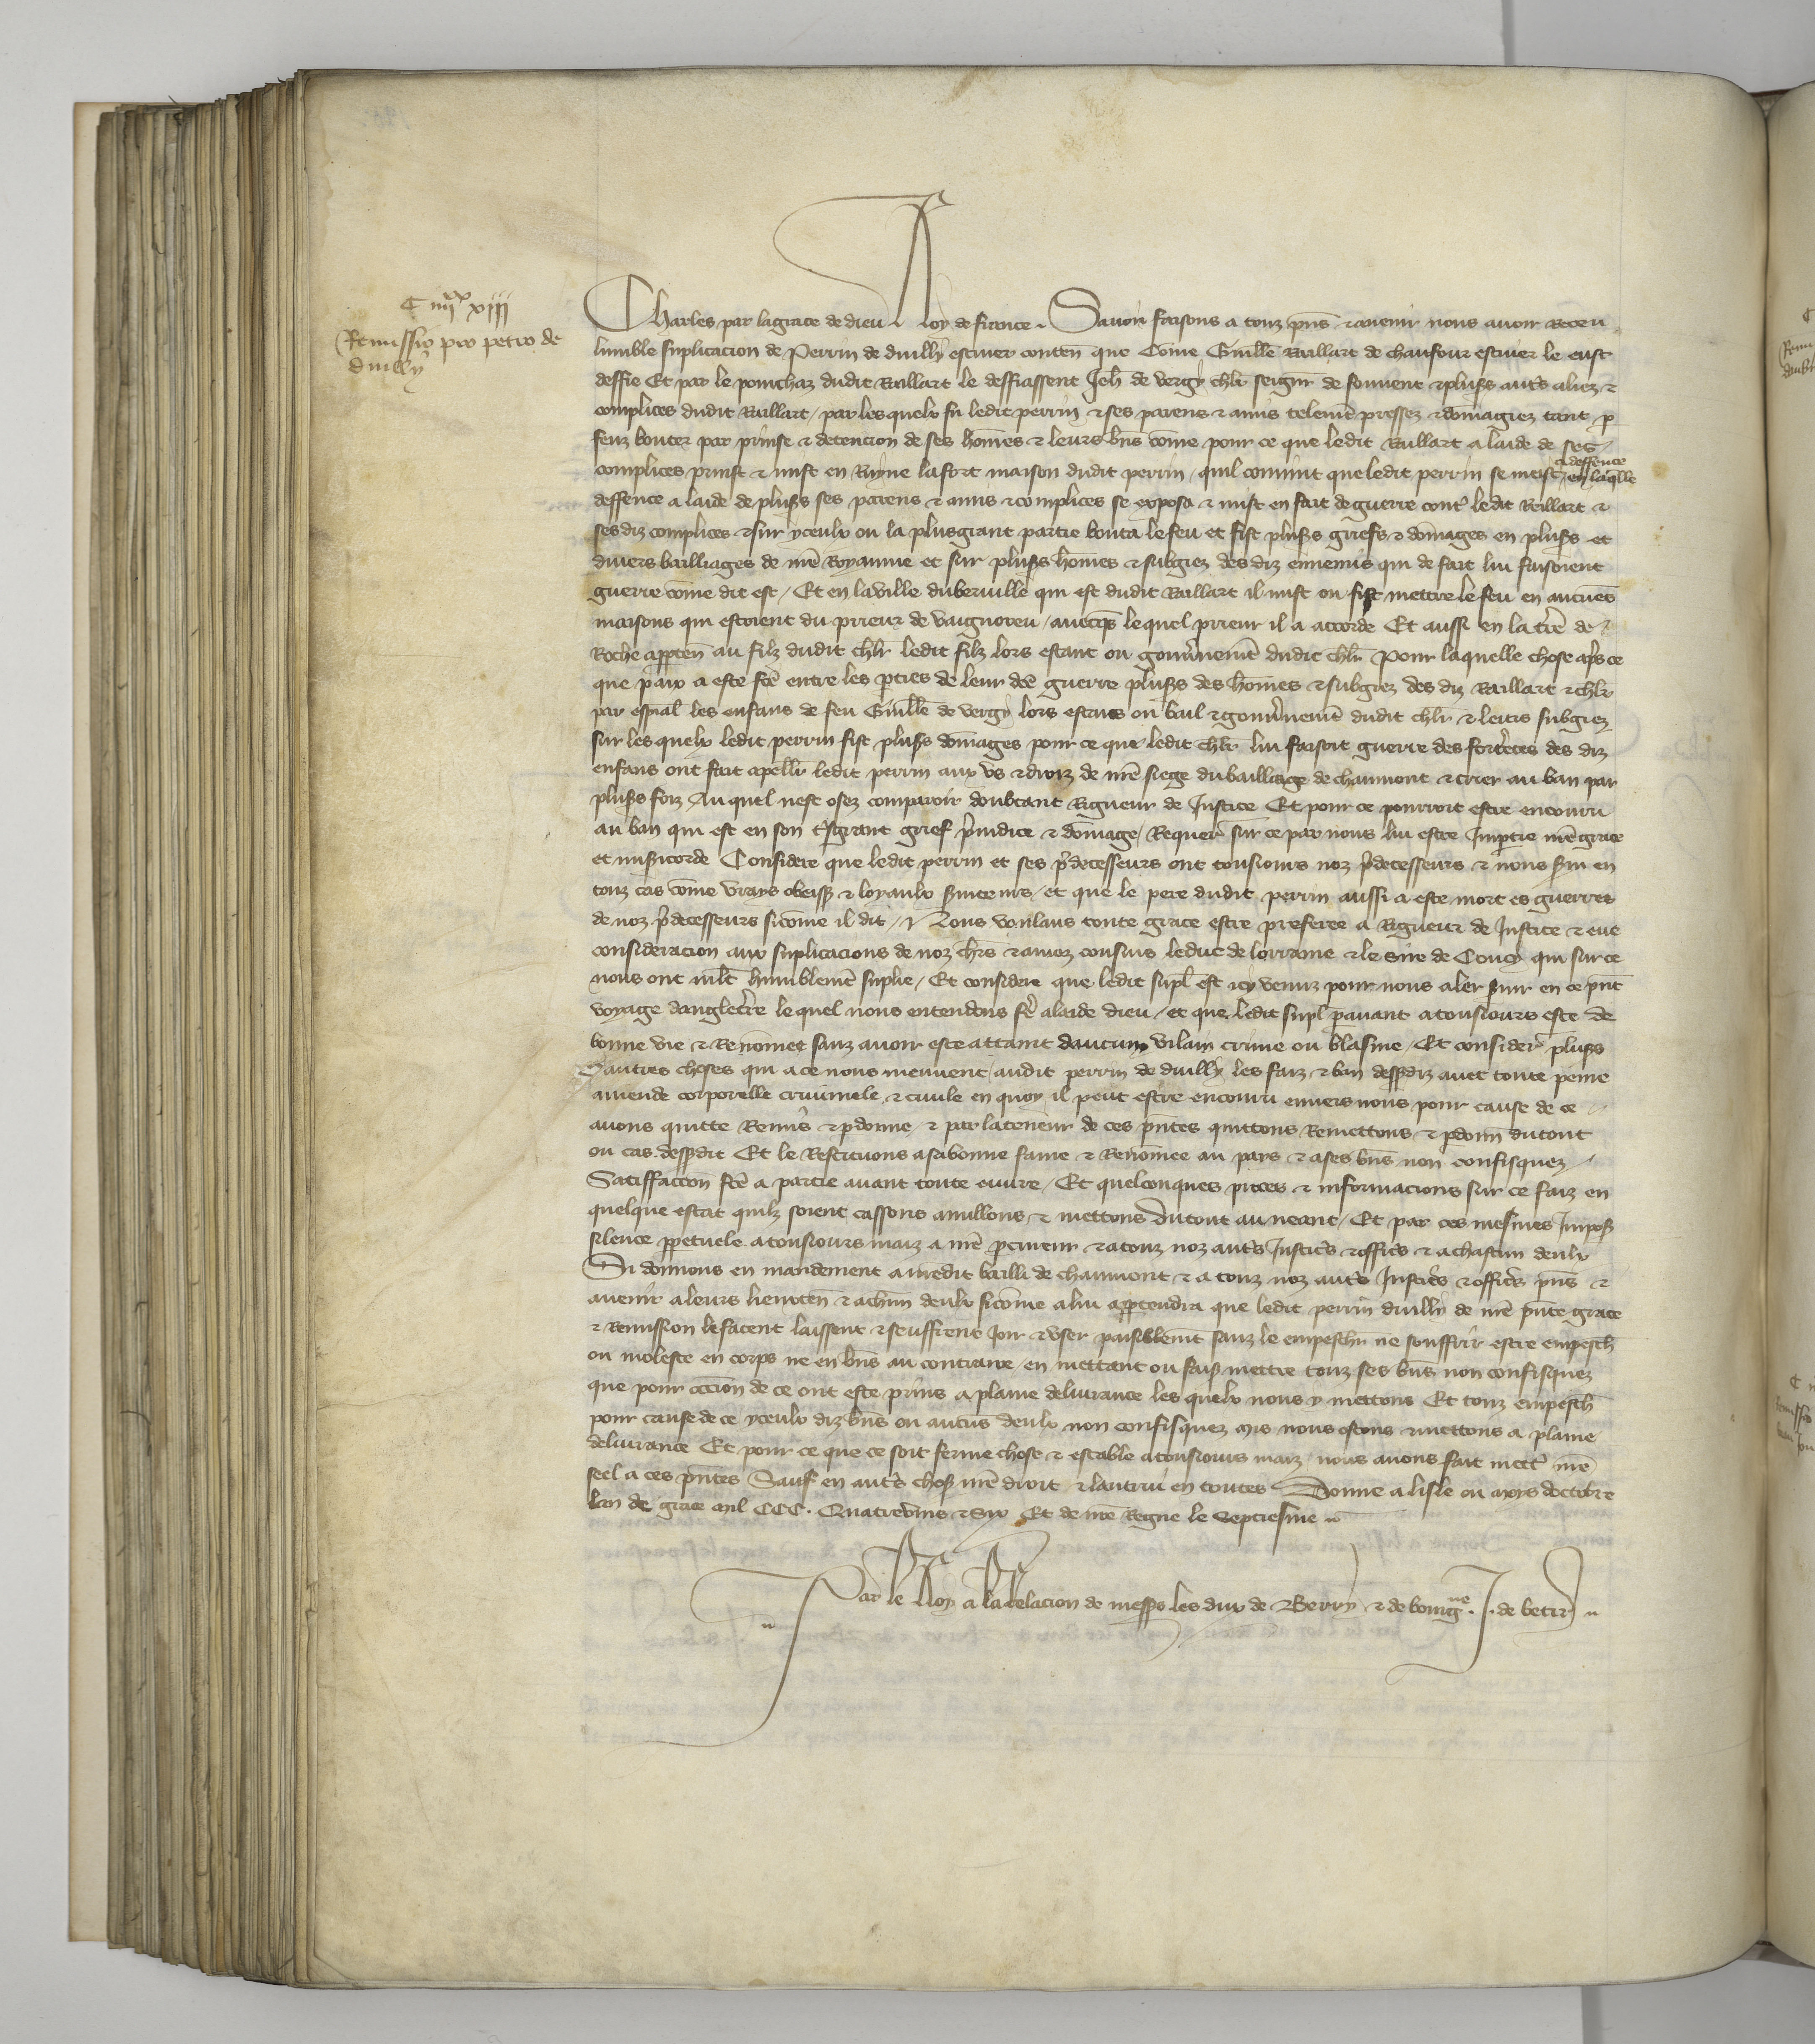 C iiiixx xiiii
Remissio pro petro de
duilly
Charles par lagrace de dieu Roy de france Sauoir faisons a touz pns̄ & auenir nous auoir Receu
lumble suplicacion de Perrin de duilly escuier conten̄ que Cōme Guille Raillart de chaufour escuier le eust
deffie Et par le pourchaz dudit Raillart le deffiassent Jeh̄ de vergy chlr̄ seigur̄ de fouuent & plus̄s aut̄s aliez &
complices dudit Raillart / par les quelx fu ledit perrin & ses parens & amis telemt̄ pressez & dōmagiez tant p
feuz bouter par prinse & detencion de ses hōmes & leurs bn̄s cōme pour ce que ledit Raillart a laide de ses
complices prinst & mist en Ruyne la fort maison dudit perrin / quil conuint que ledit perrin se meist a deffence en laqlle
deffence a laide de plus̄s ses parens & amis & complices se exposa & mist en fait de guerre cont̄ ledit Raillart &
sesdiz complices & sur yceulx ou la plusgrant partie bouta le feu et fist plus̄s griefs & dōmages en plus̄s et
diuers bailliages de nr̄e Royaume et sur plus̄s hōmes & subgiez des diz ennemis qui de fait lui faisoient
guerre cōme dit est / Et en laville duberuille qui est dudit Raillart il mist ou fist mettre le feu en aucunes
maisons qui estoient du prieur de vaignoreu / auecqs lequel prieur il a accorde Et aussi en la tr̄e de
Roche apptēn au filz dudit chlr̄ ledit filz lors estant ou gouuernemt̄ dudit chlr̄ Pour laquelle chose apr̄s ce
que paix a este fc̄e entre les pties de leur dc̄e guerre plus̄s des hōmes & subgiez des diz Raillart & chlr̄
par esp̄al les enfans de feu Guille de vergy lors estans ou bail & gouuernemt̄ dudit chlr̄ & leurs subgiez
sur les quelx ledit perrin fist plus̄s dōmages pour ce que ledit chlr̄ lui faisoit guerre des fort̄esces des diz
enfans ont fait apeller̄ ledit perrin aux vs & droiz de nr̄e siege dubailliage de chaumont & crier au ban par
plus̄s foiz Au quel nest osez comparoir doubtant Rigueur de Justice Et pour ce pourroit estre encouru
au ban qui est en son tsgrant grief p̄iudice & dōmage / Requer̄ sur ce par nous lui estre Impartie nr̄e grace
et mis̄icorde Considere que ledit perrin et ses p̄decesseurs ont tousiours noz p̄decesseurs & nous s̄uy en
touz cas cōme vrays obeiss̄ & loyaulx s̄uiteurs / et que le pere dudit perrin aussi a este mort es guerres
de noz p̄decesseurs sicōme il dit / Nous voulans toute grace estre preferee a Rigueur de Justice & eue
consideracion aux suplicacions de noz chr̄s & amez cousins leduc de lorraine & le sire de Coucy qui sur ce
nous ont mlt̄ humblemt̄ suplie / Et considere que ledit supl̄ est icy venuz pour nous aler suir en ce pn̄t
voyage dangleterre le quel nous entendons fr̄e alaide dieu / et que ledit supl̄ pauant atousiours este de
bonne vie & Renōmee sanz auoir este attaint daucun vilain crime ou blasme / Et consider̄ plus̄s
dautres choses qui ace nous meuuent / audit perrin de duilly les faiz & ban dessusdiz auec toute peine
amende corporelle criminele & ciuile en quoy il peut estre encouru enuers nous pour cause de ce
auons quitte Remis & pdonne / & par lateneur de ces pn̄tes quittons Remettons & pdonn̄ dutout
ou cas dessusdit Et le Restituons a sabonne fame & Renōmee au pays & a ses bn̄s non confisquez
Satisfaccōn fc̄e a partie auant toute euure / Et quelconques proces & informacions sur ce faiz en
quelque estat quilz soient cassons anullons & mettons dutout au neant / Et par ces mesmes Imposs̄
silence ppetuele atousioursmaiz a nr̄e pcureur & atouz noz aut̄s Justic̄s & offic̄s & achascun deulx
Si donnons en mandement a nr̄edit bailli de chaumont & a touz noz aut̄s Justic̄s & offic̄s pn̄s &
auenir aleurs lieuxten̄ & achūn deulx sicōme alui apptendra que ledit perrin duilly de nr̄e pn̄te grace
& Remission lefacent laissent & seuffrent Joir & vser paisiblemt̄ sanz le empeschr̄ ne souffrir estre empesch̄
ou moleste en corps ne en bn̄s au contraire en mettant ou faiss̄ mettre touz ses bn̄s non confisquez
que pour occon de ce ont este prins a plaine deliurance les quelx nous y mettons Et touz empesch̄
pour cause de ce yceulx diz bn̄s ou aucuns deulx non confisquez mis nous ostons & mettons a plaine
deliurance Et pour ce que ce soit ferme chose & estable atousiours maiz / nous auons fait mett̄ nr̄e
seel a ces pn̄tes Sauf en aut̄s chos̄ nr̄e droit & lautrui en toutes Donne a lisle ou moys doctobre
lan de grace mil CCC . Quatrevins & Six Et de nr̄e Regne le septiesme
Par le Roy a la Relacion de mess̄s les dux de Berry & de bourgne . J . de betis̄